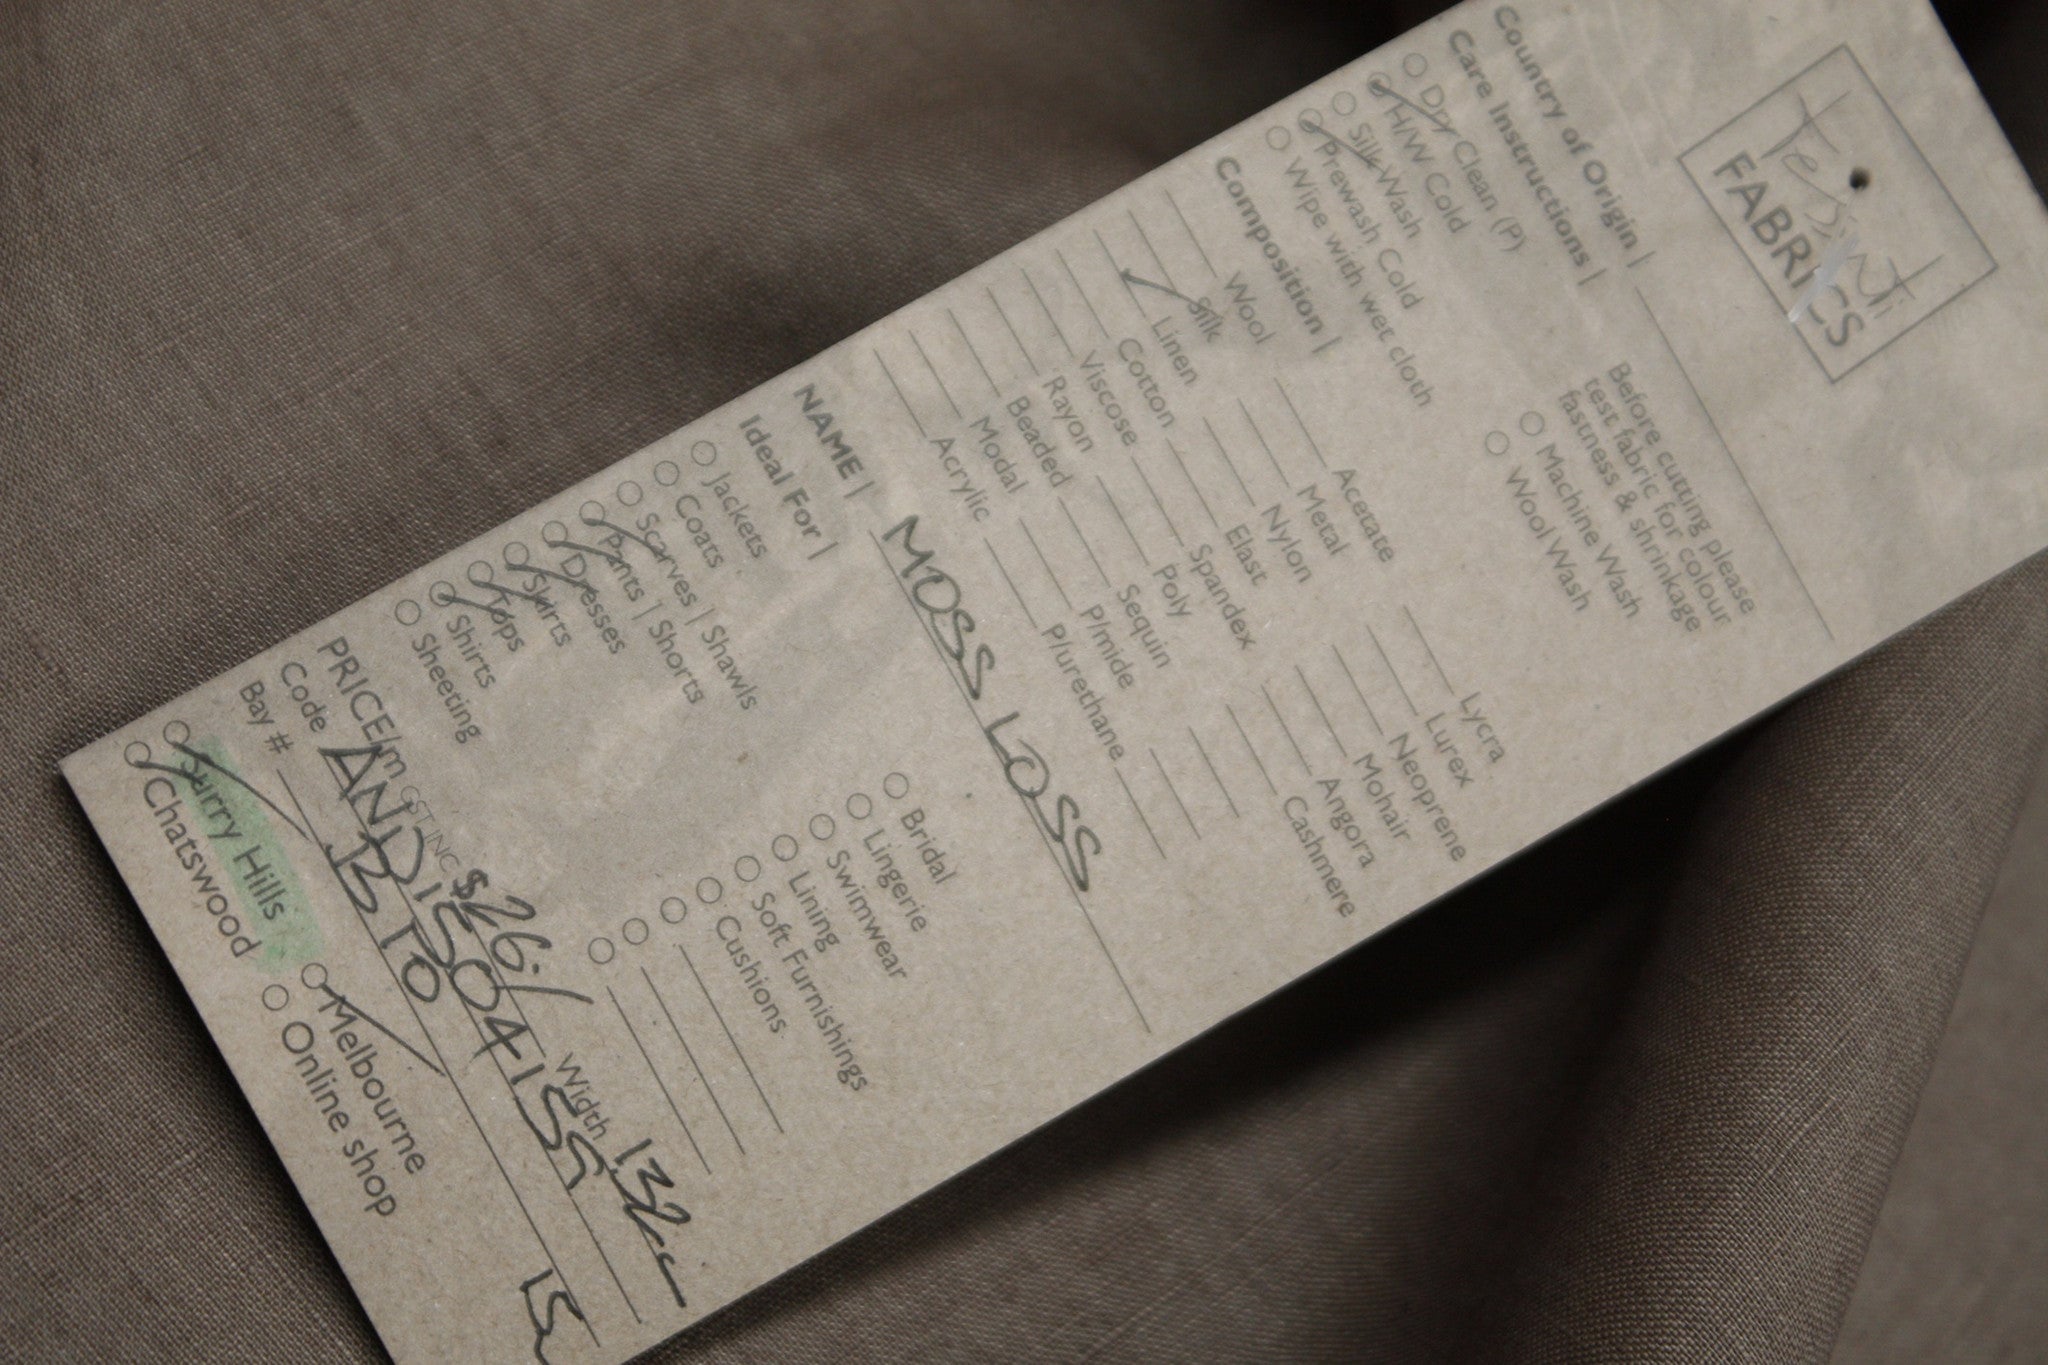 Tessuti
FABRICS
Country of Origin |
Care Instructions |
Before cutting please
test fabric for colour
fastness & shrinkage
Dry Clean (P)
H/W Cold
Silk Wash
Prewash Cold
Wipe with wet cloth
Machine Wash
Wool Wash
Composition |
Wool
Silk
Linen
Cotton
Viscose
Rayon
Beaded
Modal
Acrylic
Acetate
Metal
Nylon
Elast
Spandex
Poly
Sequin
P/mide
P/urethane
Lycra
Lurex
Neoprene
Mohair
Angora
Cashmere
NAME | MOSS LOSS
Ideal For |
Jackets
Coats
Scarves | Shawls
Pants | Shorts
Dresses
Skirts
Tops
Shirts
Sheeting
Bridal
Lingerie
Swimwear
Lining
Soft Furnishings
Cushions
PRICE/m GST INC $26.1 Width 132
Code
Bay # B TO
Surry Hills
Chatswood
Melbourne
Online shop